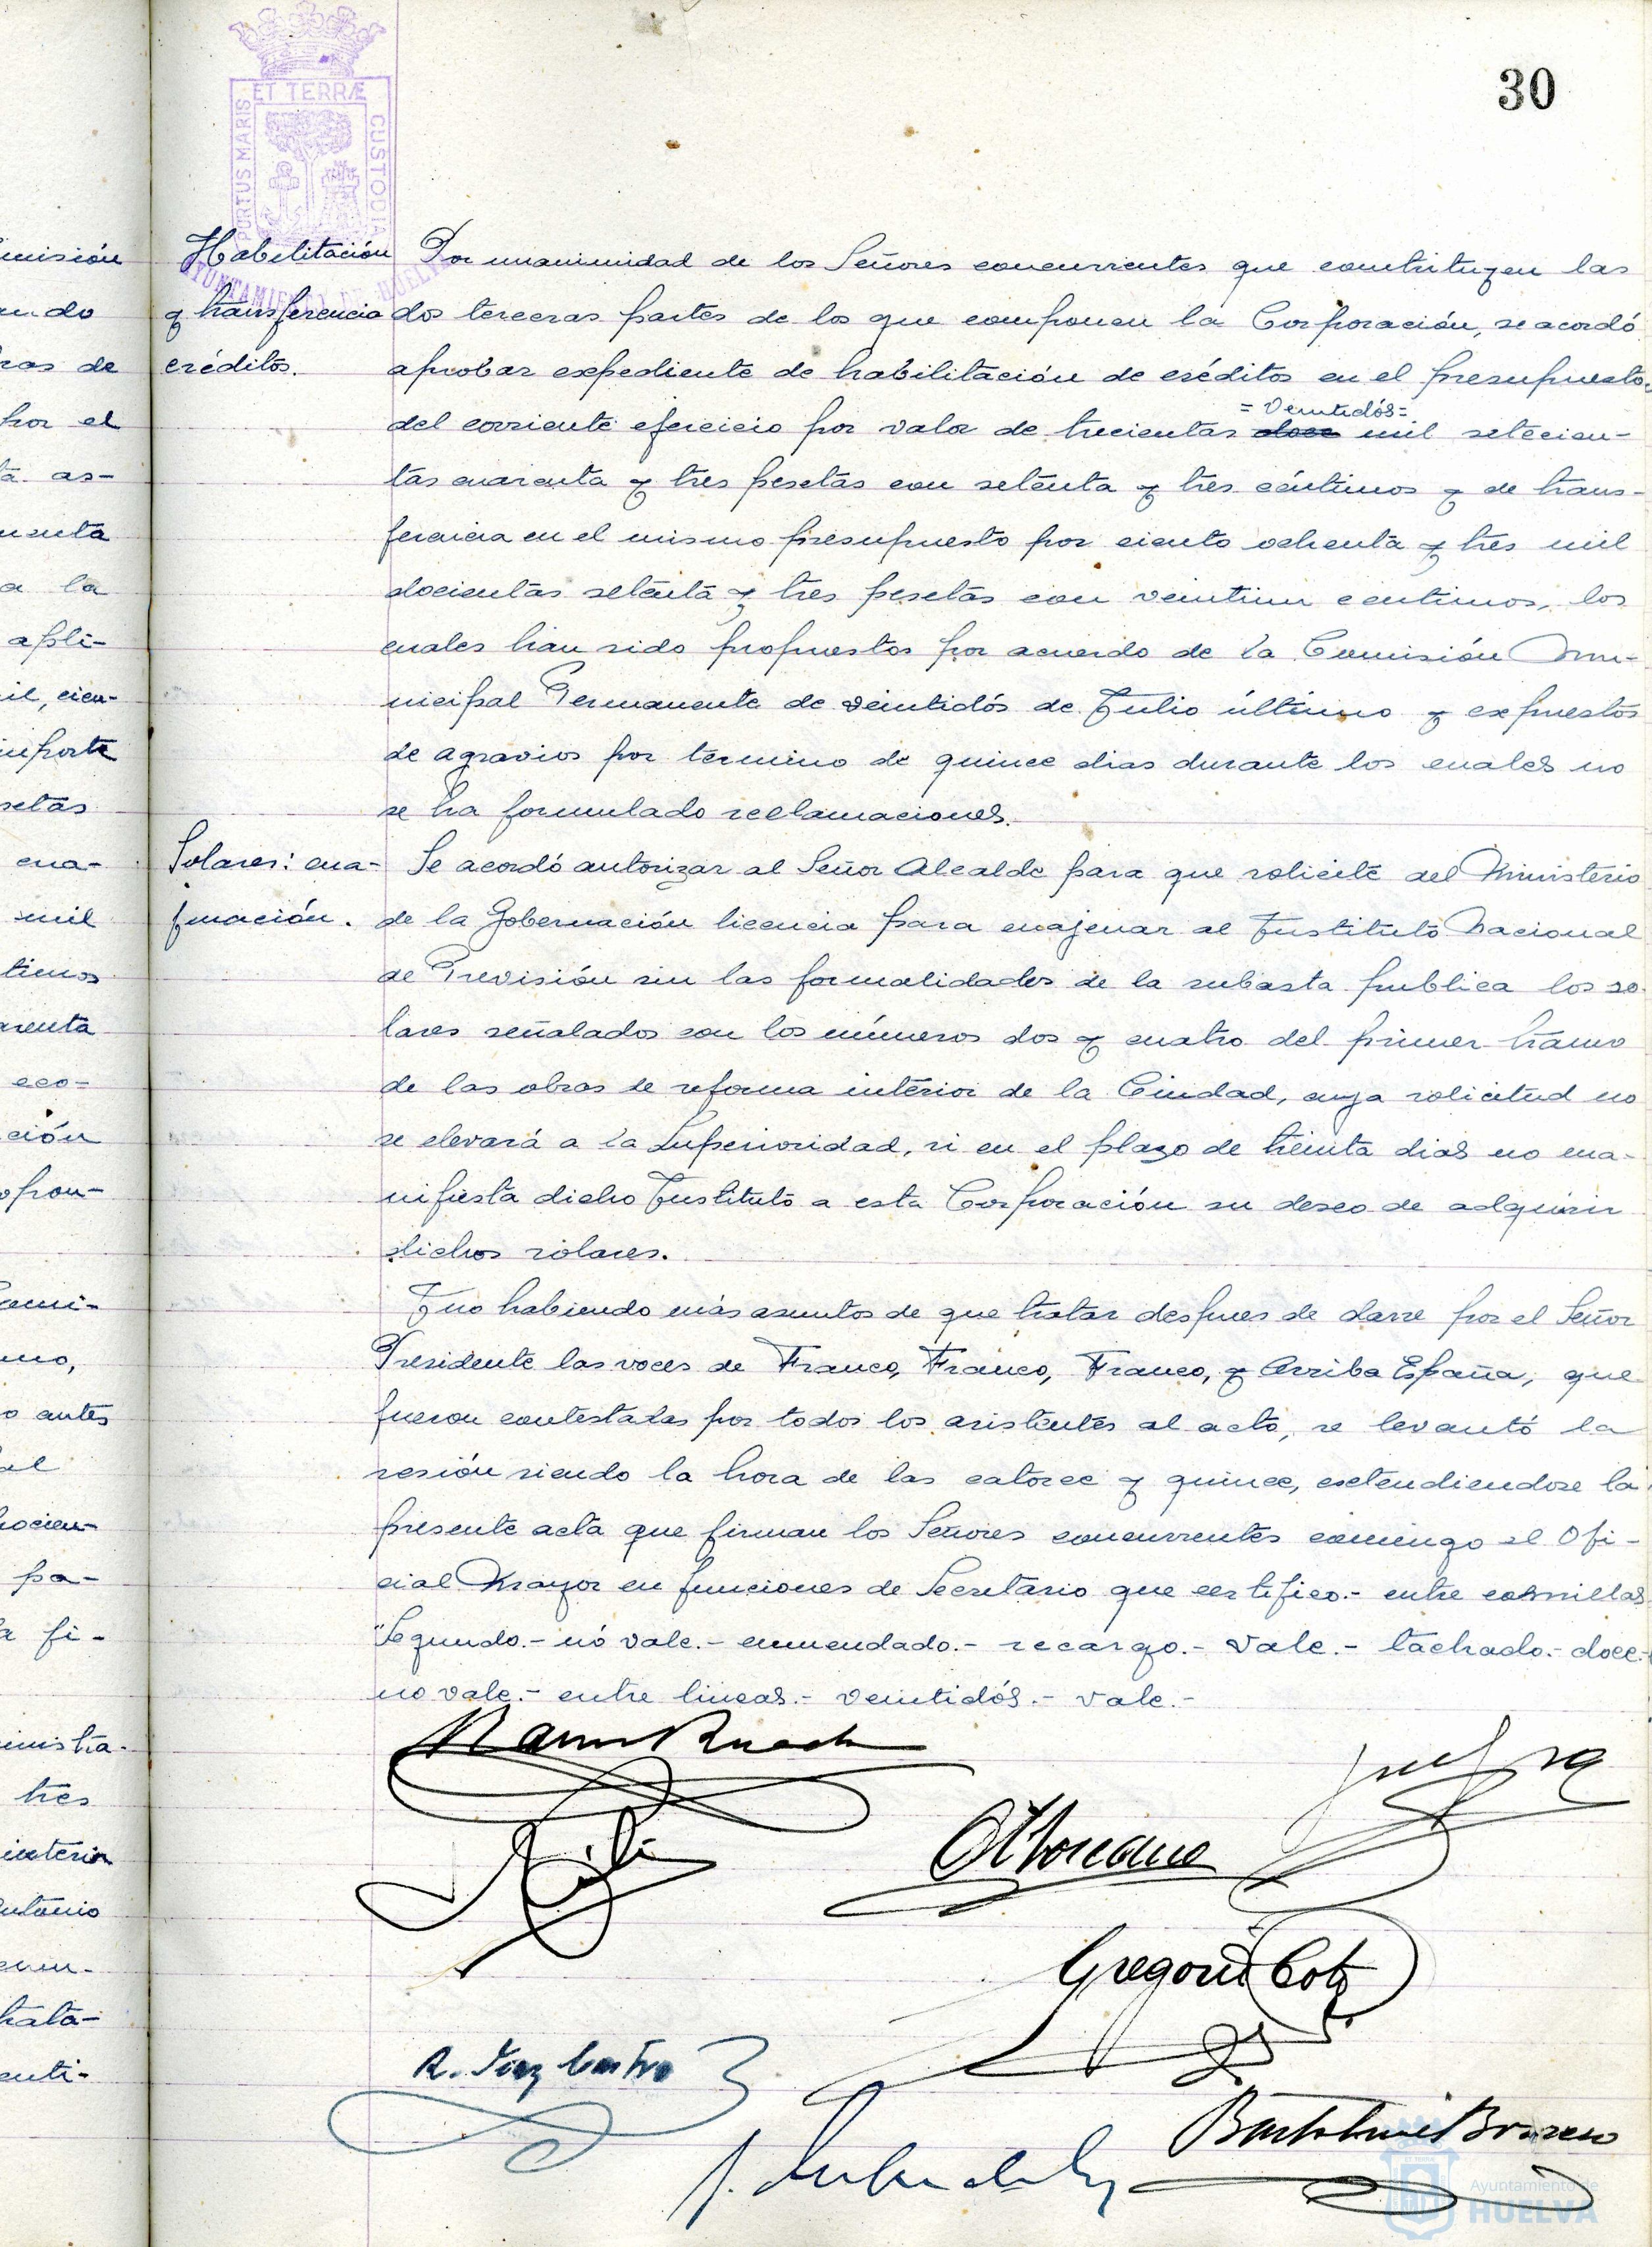 30
PORTUS MARIS ET TERRÆ CUSTODIA
AYUNTAMIENTO DE HUELVA
Habilitación
y transferencia
créditos.
Por unanimidad de los Señores concurrentes que constituyen las
dos terceras partes de los que componen la Corporación, se acordó
aprobar expediente de habilitación de créditos en el presupuesto
=Veintidós=
del corriente ejercicio por valor de trecientas doce mil setecien-
tas cuarenta y tres pesetas con setenta y tres céntimos y de trans-
ferencia en el mismo presupuesto por ciento ochenta y tres mil
docientas setenta y tres pesetas con veintiun centimos, los
cuales han sido propuestos por acuerdo de la Comisión Mu-
nicipal Permanente de veintidós de Julio último y expuestos
de agravios por termino de quince dias durante los cuales no
se ha formulado reclamaciones.
Solares: ena-
jenación.
Se acordó autorizar al Señor Alcalde para que solicite del Ministerio
de la Gobernación licencia para enajenar al Instituto Nacional
de Previsión sin las formalidades de la subasta publica los so-
lares señalados con los números dos y cuatro del primer tramo
de las obras de reforma interior de la Ciudad, cuya solicitud no
se elevará a la Superioridad, si en el plazo de treinta dias no ma-
nifiesta dicho Instituto a esta Corporación su deseo de adquirir
dichos solares.
Y no habiendo más asuntos de que tratar despues de darse por el Señor
Presidente las voces de Franco, Franco, Franco, y Arriba España, que
fueron contestadas por todos los asistentes al acto, se levantó la
sesión siendo la hora de las catorce y quince, extendiendose la
presente acta que firman los Señores concurrentes conmigo el Ofi-
cial Mayor en funciones de Secretario que certifico.- entre comillas
"Segundo.- nó vale.- enmendado.- recargo.- vale.- tachado.- doce.-
no vale.- entre lineas.- veintidós.- vale.-
Gregorio
R. Diaz Castro
Bartolomé
Ayuntamiento de
HUELVA
misión
ando
por el
as-
a la
apli-
mil, cien-
importe
setas
ena-
mil
timos
eco-
ción
pon-
o antes
al
pa-
a fi-
nistra-
tres
interior
Antonio